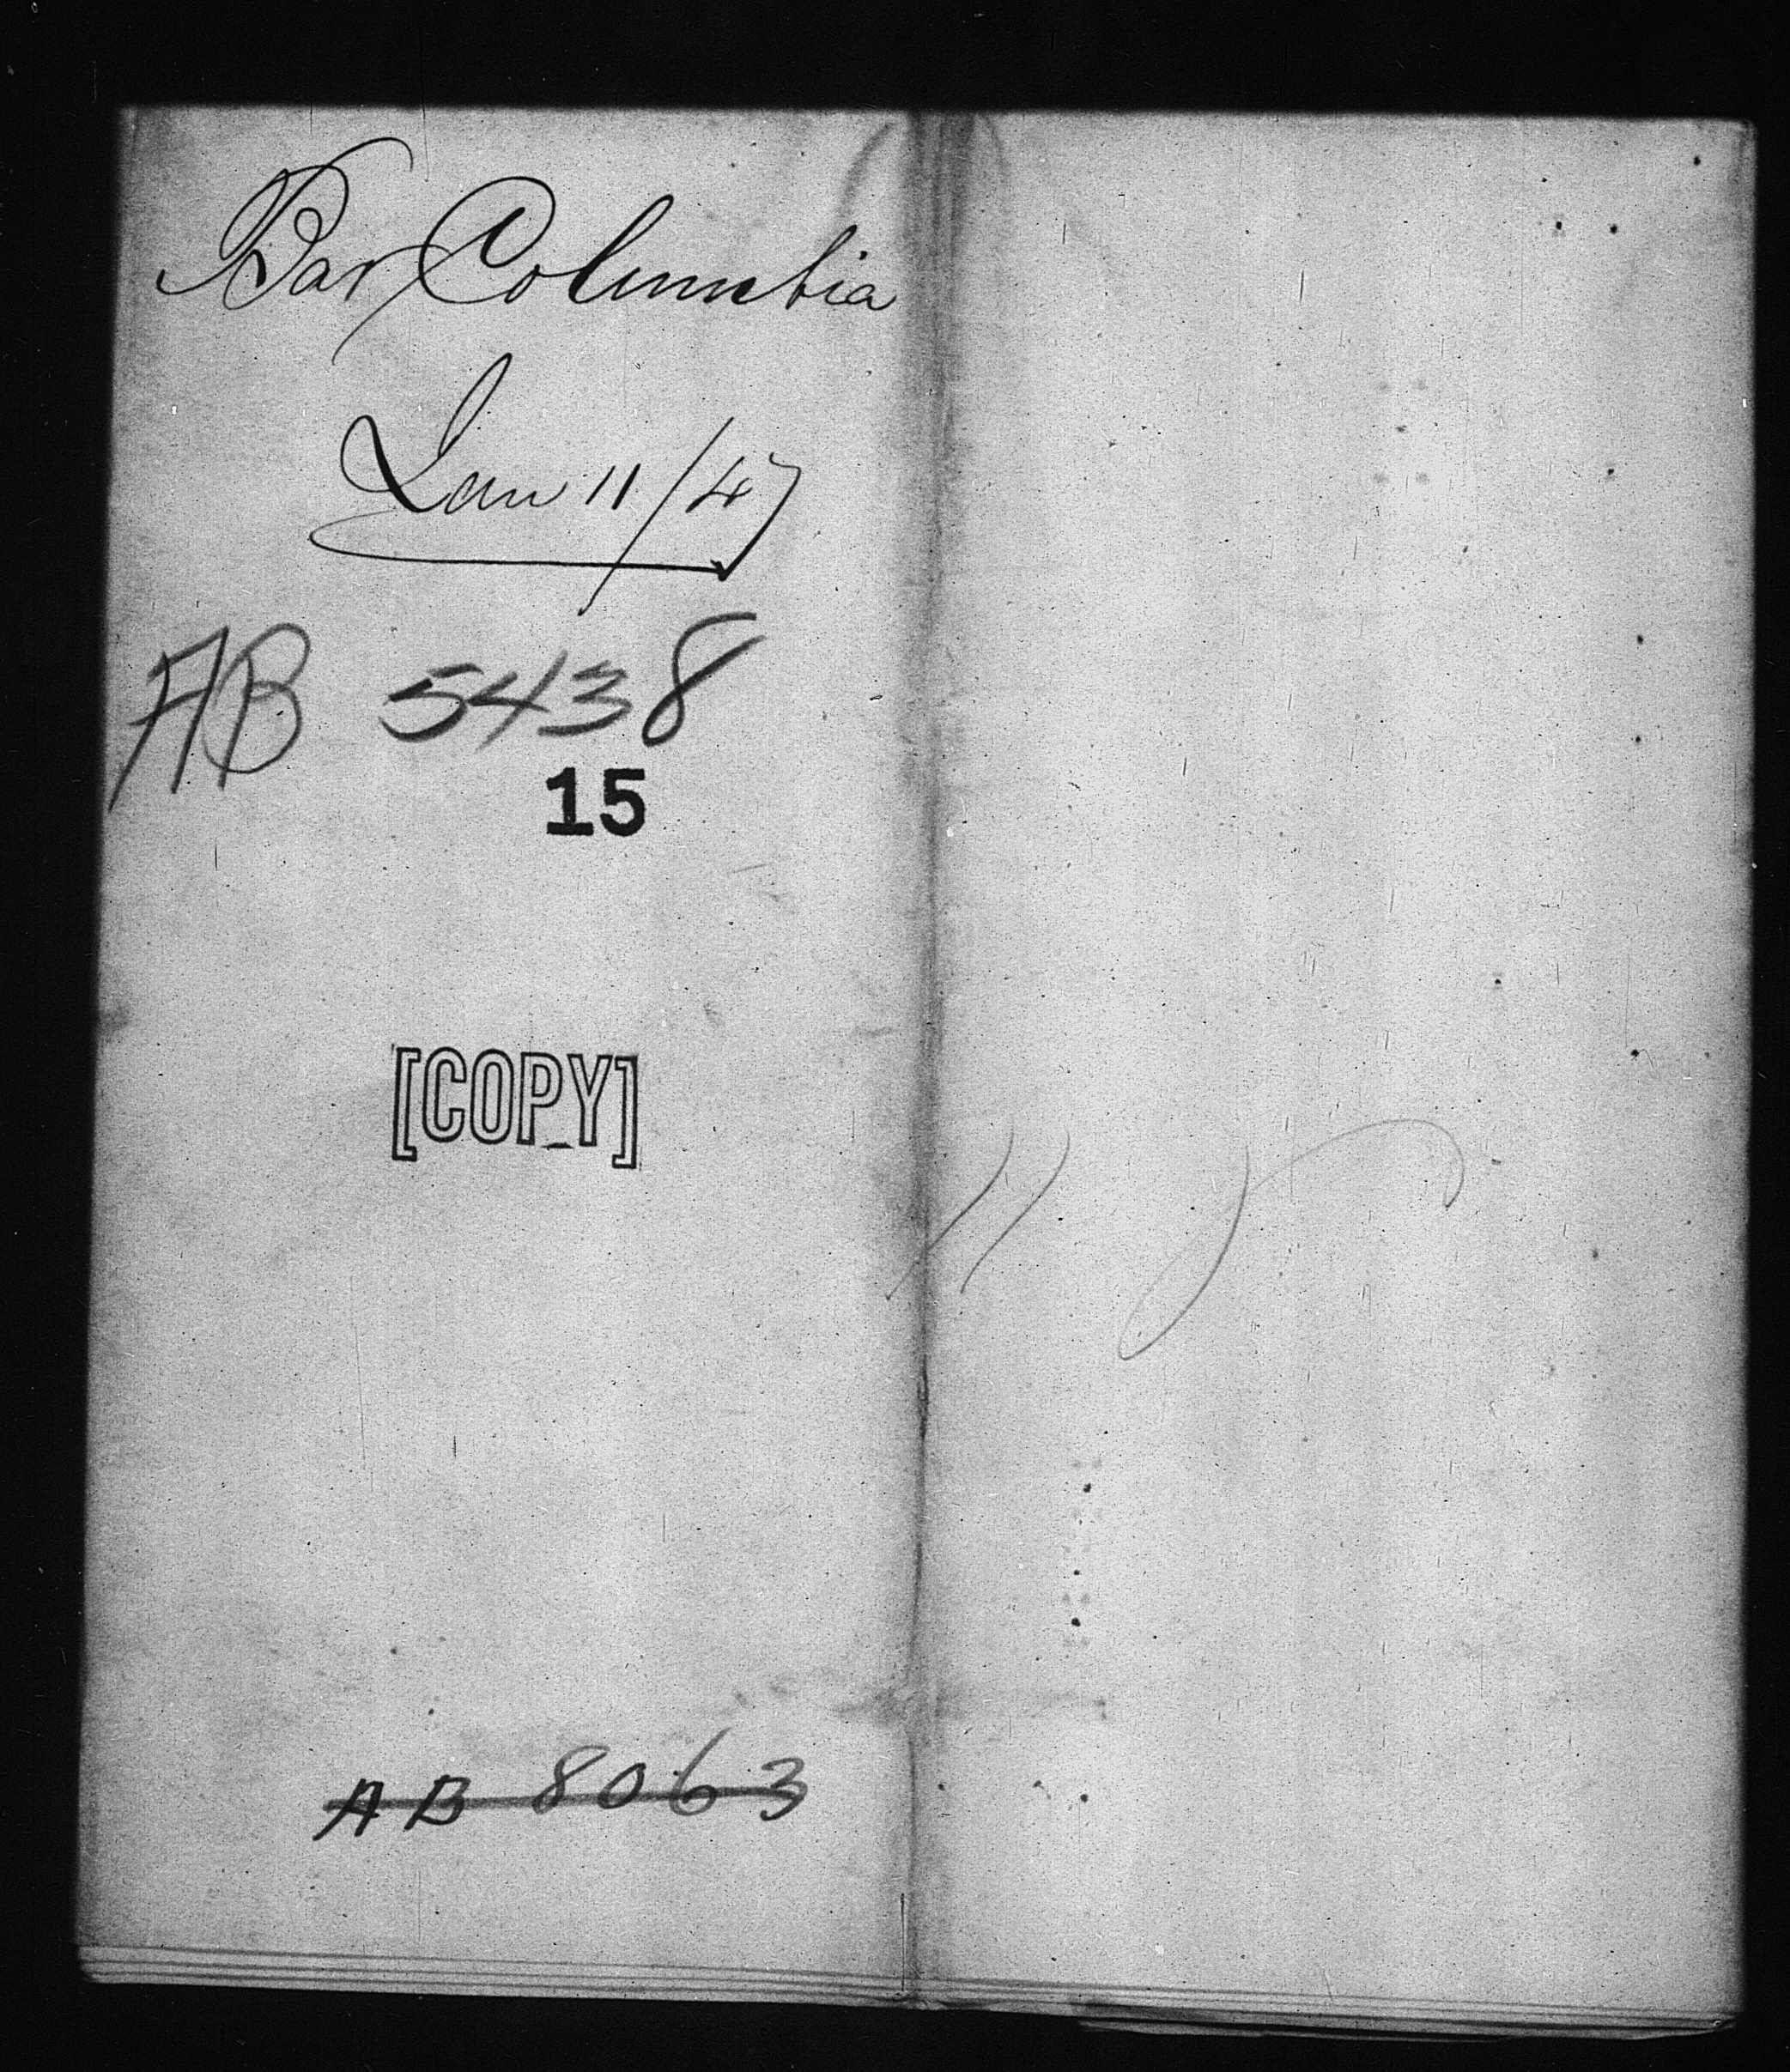 Bar Columbia
Jan 11/47
AB 5438
15
[COPY]
AB 8063